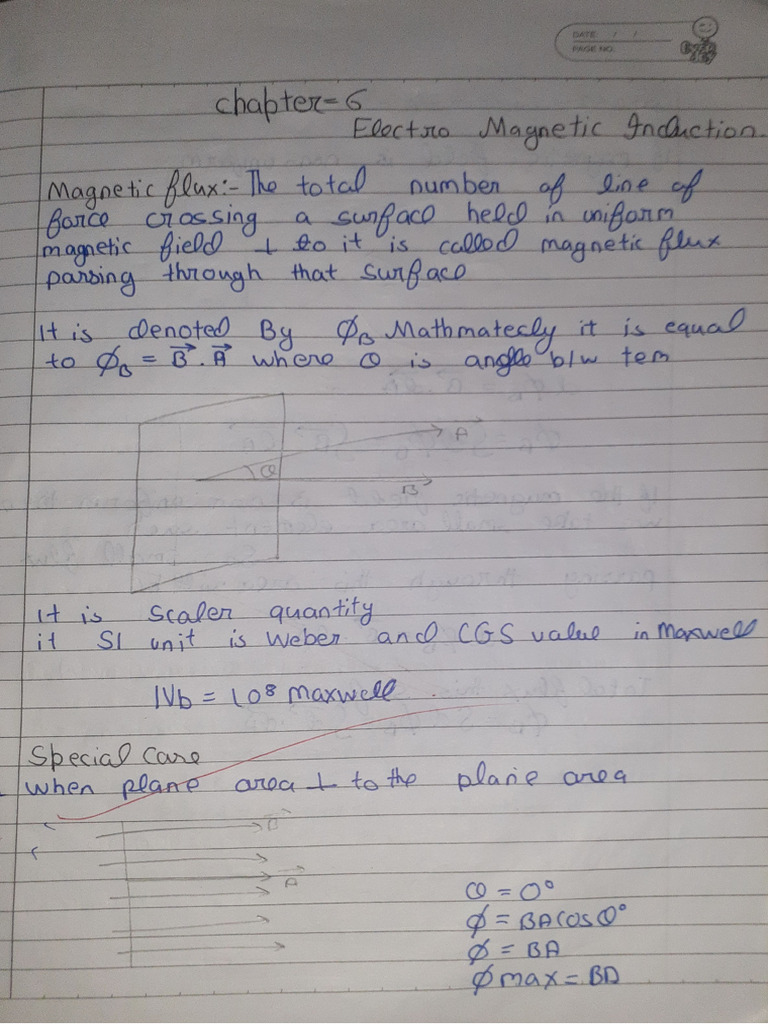 DATE / /
PAGE NO.
Chapter-6
Electro Magnetic Induction
Magnetic flux:- The total number of line of
force crossing a surface held in uniform
magnetic field ⊥ to it is called magnetic flux
parsing through that surface
It is denoted By ϕB Mathmatecly it is equal
to ϕB = B⃗ . A⃗ where θ is angle b/w tem
A⃗
θ
B⃗
It is Scaler quantity
it SI unit is Weber and CGS value in Maxwell
1Vb = 10⁸ maxwell
Special Case
When plane area ⊥ to the plane area
B⃗
A⃗
θ = 0°
ϕ = BA cos 0°
ϕ = BA
ϕ max = BA